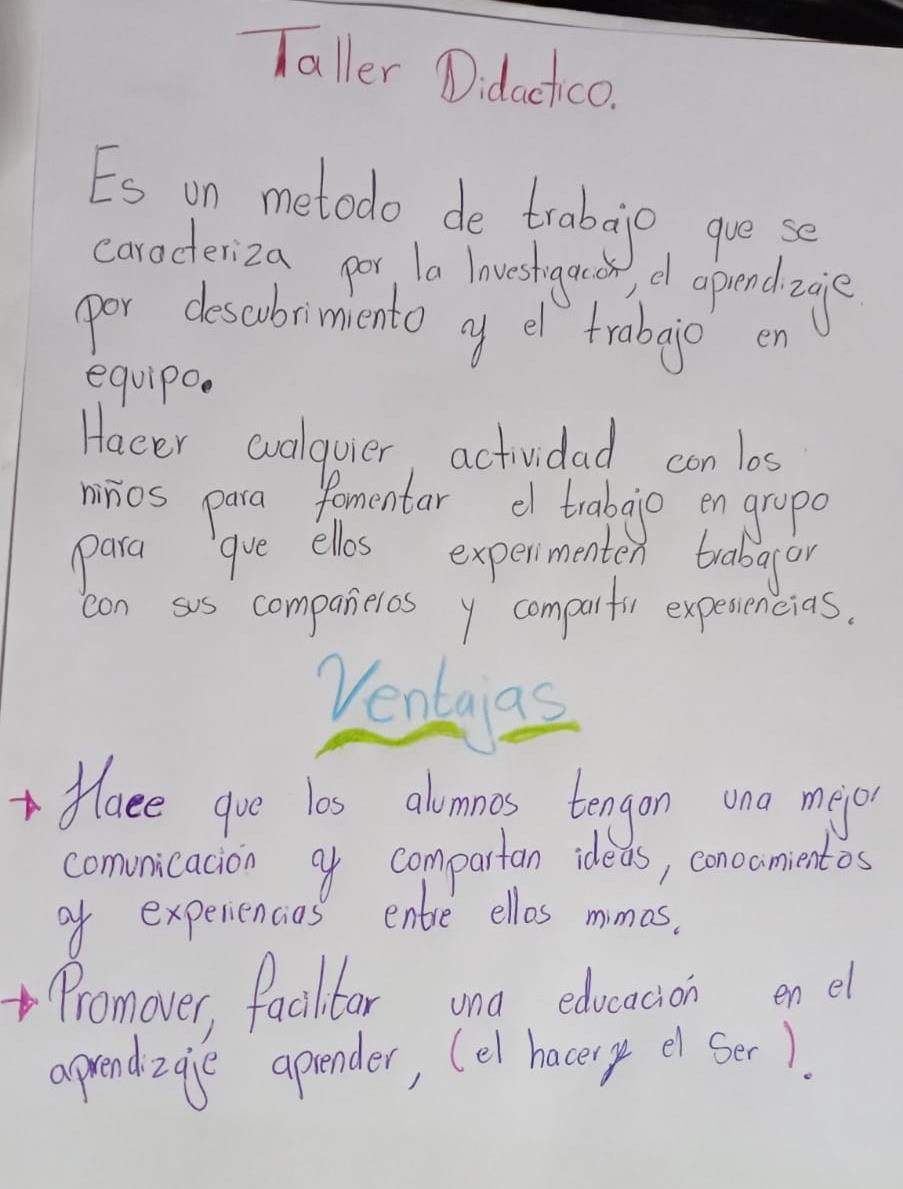 Taller Didactico.
Es un metodo de trabajo que se
caracteriza por la Investigación, el aprendizaje
por descubrimiento y el trabajo en
equipo.
Hacer cualquier actividad con los
niños para fomentar el trabajo en grupo
para que ellos experimenten trabajar
con sus compañeros y compartir experiencias.
Ventajas
→ Hace que los alumnos tengan una mejor
comunicación y compartan ideas, conocimientos
y experiencias entre ellos mimos.
→ Promover, facilitar una educación en el
aprendizaje aprender, (el hacer y el Ser).